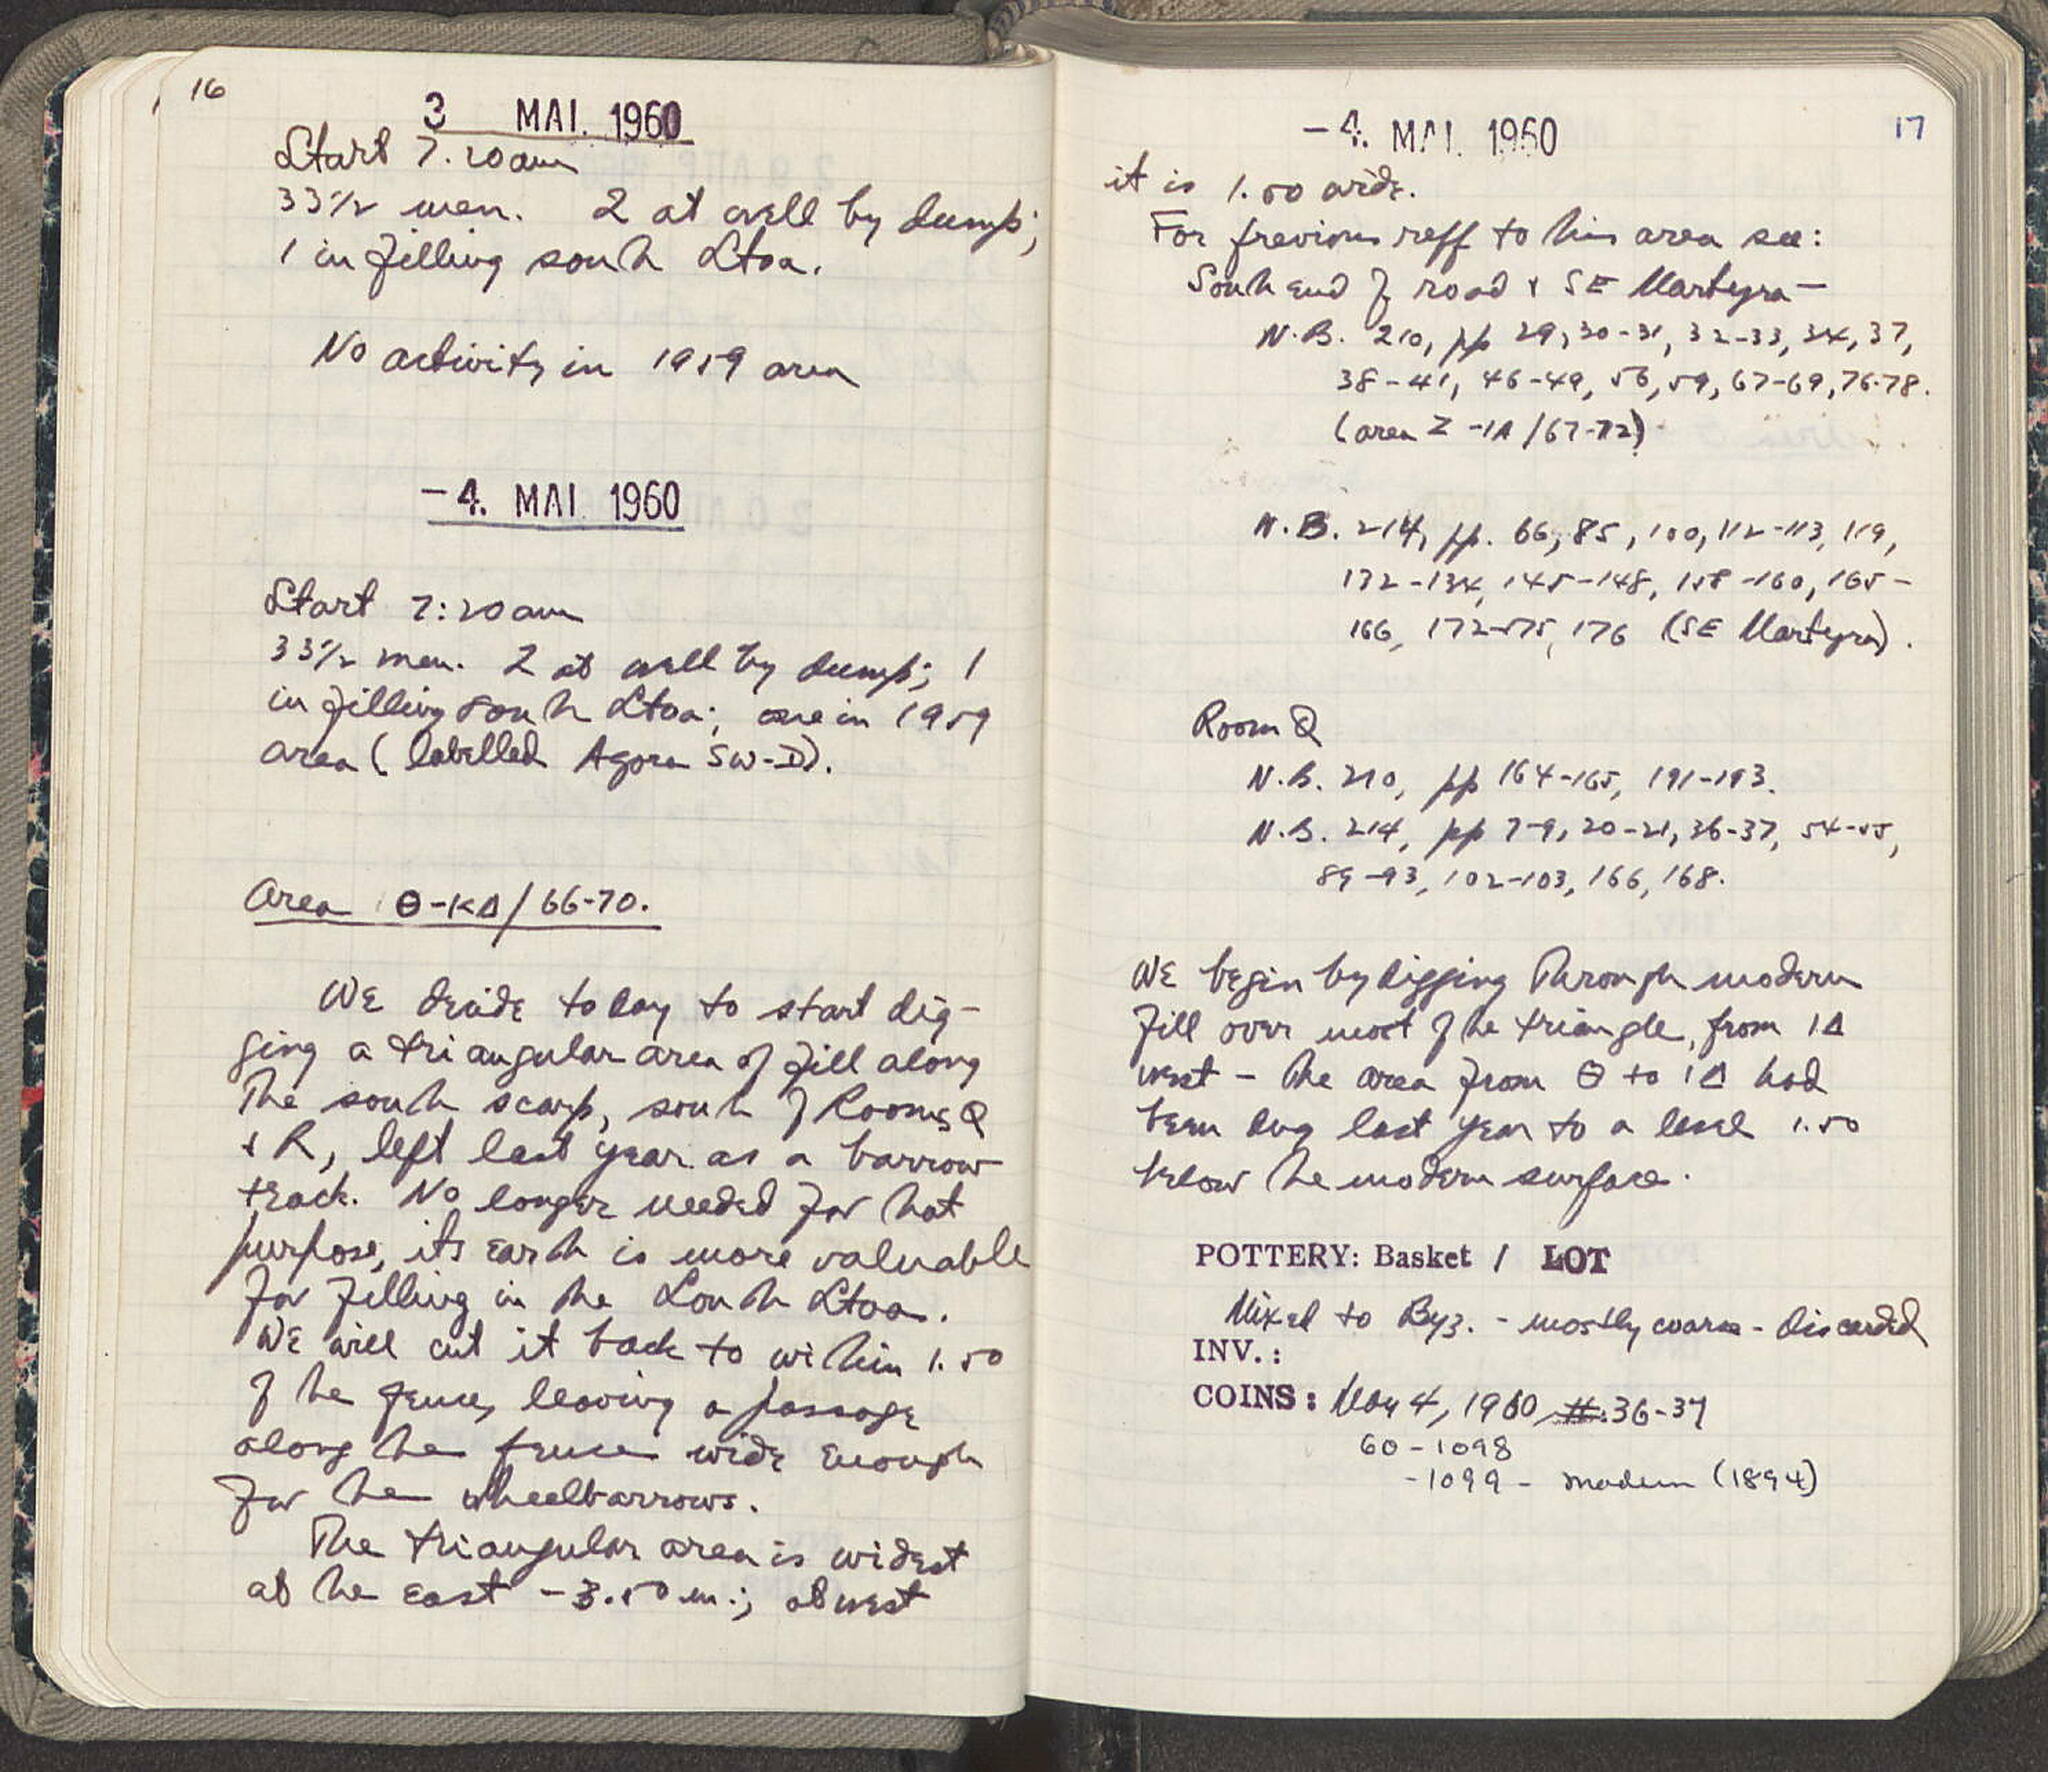 16
3 MAI. 1960
Start 7.20am
33½ men. 2 at well by dump;
1 in filling south Stoa.
No activity in 1959 area
-4. MAI 1960
Start 7:20am
33½ men. 2 at well by dump; 1
in filling south Stoa; one in 1959
area (labelled Agora SW-D).
Area Θ-ΚΔ/66-70.
We decide today to start dig-
ging a triangular area of fill along
the south scarp, south of Rooms Q
+ R, left last year as a barrow
track. No longer needed for that
purpose, its earth is more valuable
for filling in the South Stoa.
We will cut it back to within 1.50
of the fence, leaving a passage
along the fence wide enough
for the wheelbarrows.
The triangular area is widest
at the east - 3.50 m.; at west
17
-4. MAI. 1960
it is 1.50 wide.
For previous reff to this area see:
South end of road + SE Martyra-
N.B. 210, pp 29, 30-31, 32-33, 34, 37,
38-41, 46-49, 56, 59, 67-69, 76-78.
(area Z-IA/67-72)
N.B. 214, pp. 66, 85, 100, 112-113, 119,
132-134, 145-148, 158-160, 165-
166, 172-175, 176 (SE Martyra).
Room Q
N.B. 210, pp 164-165, 191-193.
N.B. 214, pp 7-9, 20-21, 36-37, 54-55,
89-93, 102-103, 166, 168.
We begin by digging through modern
fill over most of the triangle, from ΙΔ
west - the area from Θ to ΙΔ had
been dug last year to a level 1.50
below the modern surface.
POTTERY: Basket 1 LOT
Mixed to Byz. - mostly coarse - discarded
INV.:
COINS: May 4, 1960 #:36-37
60-1098
-1099 - modern (1894)